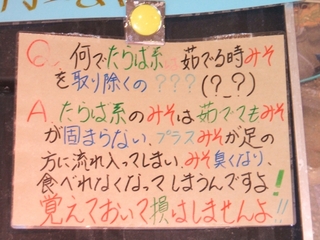 Q、何でたらば系 茹でる時みそ
を取り除くの???(?_?)
A、たらば系のみそは茹でてもみそ
が固まらない、プラスみそが足の
方に流れ入ってしまい、みそ臭くなり、
食べれなくなってしまうんですよ!
覚えておいて損はしませんよ!!